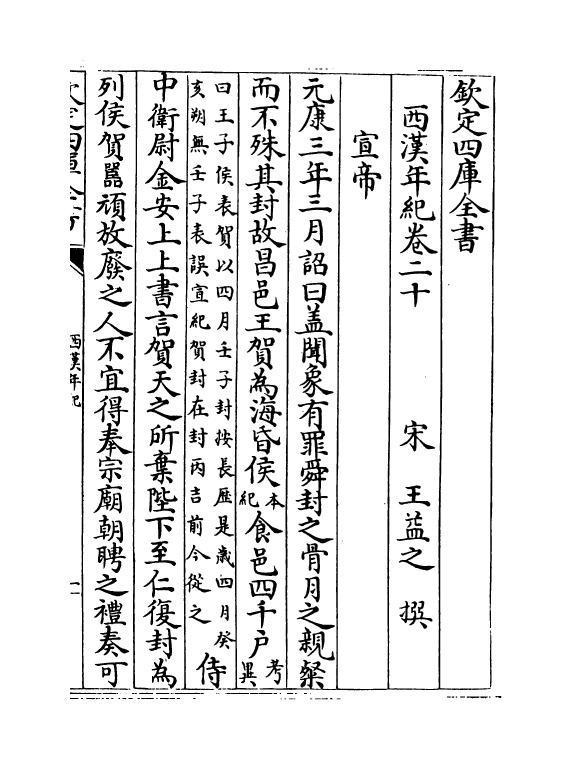 欽定四庫全書
西漢年紀卷二十　宋　王益之　撰
宣帝
元康三年三月詔曰盖聞象有罪舜封之骨月之親粲
而不殊其封故昌邑王賀為海昏侯本紀食邑四千户考異
曰王子侯表賀以四月壬子封按長歴是歳四月癸
亥朔無壬子表誤宣紀賀封在封丙吉前今從之侍
中衛尉金安上上書言賀天之所棄陛下至仁復封為
列侯賀嚚頑放廢之人不宜得奉宗廟朝聘之禮奏可
欽定四庫全書
西漢年紀
一